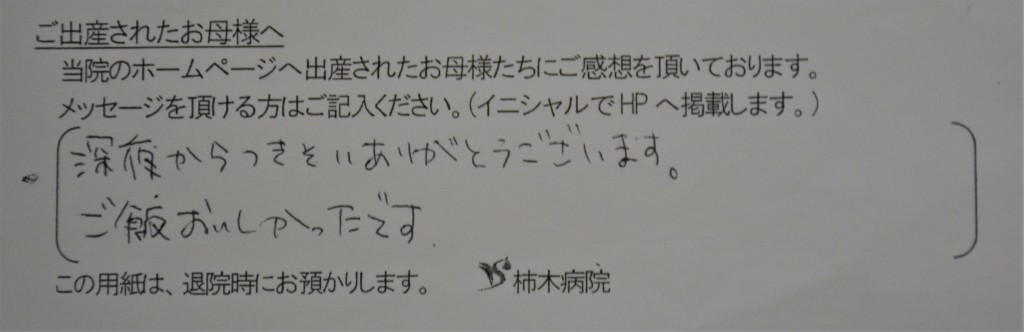 ご出産されたお母様へ
当院のホームページへ出産されたお母様たちにご感想を頂いております。
メッセージを頂ける方はご記入ください。(イニシャルでHPへ掲載します。)
深夜からつきそいありがとうございます。
ご飯おいしかったです
この用紙は、退院時にお預かりします。 柿木病院